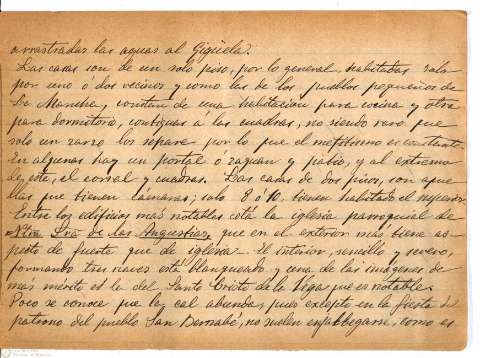 arrastradas las aguas al Gigüela.
Las casas son de un solo piso, por lo general, habitadas solo
por uno ó dos vecinos y como las de los pueblos pequeños de
La Mancha, constan de una habitacion para cocina y otra
para dormitorio, contiguas á las cuadras, no siendo raro que
solo un zarzo los separe por lo que el mefitismo es constante.
En algunas hay un portal ó zaguan y patio, y al extremo
de este, el corral y cuadras. Las casas de dos pisos, son aque
llas que tienen cámaras; solo 8 ó 10, tienen habitado el superior.
Entre los edificios mas notables está la iglesia parroquial de
Ntra Sra de las Angustias, que en el exterior mas tiene as-
pecto de fuerte que de iglesia. El interior, sencillo y severo,
formando tres naves está blanqueado y una de las imágenes de
mas mérito es la del Santo Cristo de la Vega que es notable.
Poco se conoce que la cal abunda, pues excepto en la fiesta de
paterno del pueblo San Bernabé, no suelen enjalbegarse, como es